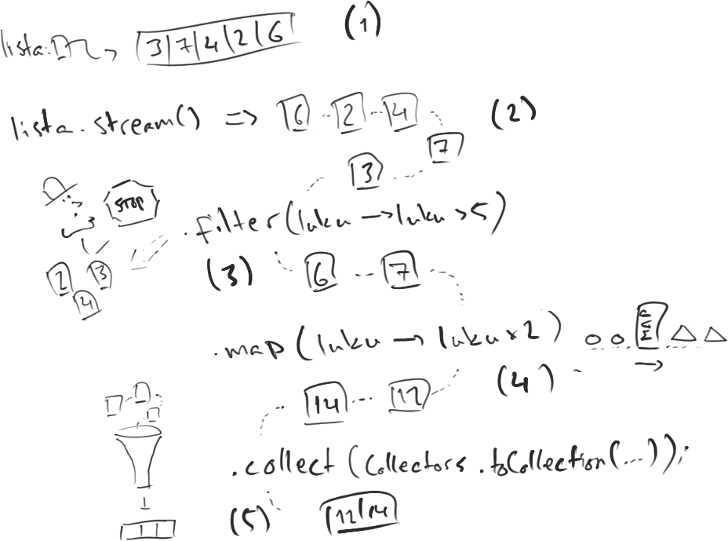 lista: 3 7 4 2 6 (1)
lista.stream() => 6 2 4 (2)
7
3
STOP
.filter(luku → luku > 5)
2 3 (3) 6 7
4
.map(luku → luku * 2) MAP
14 12 (4)
.collect(Collectors.toCollection(...));
(5) 12 14